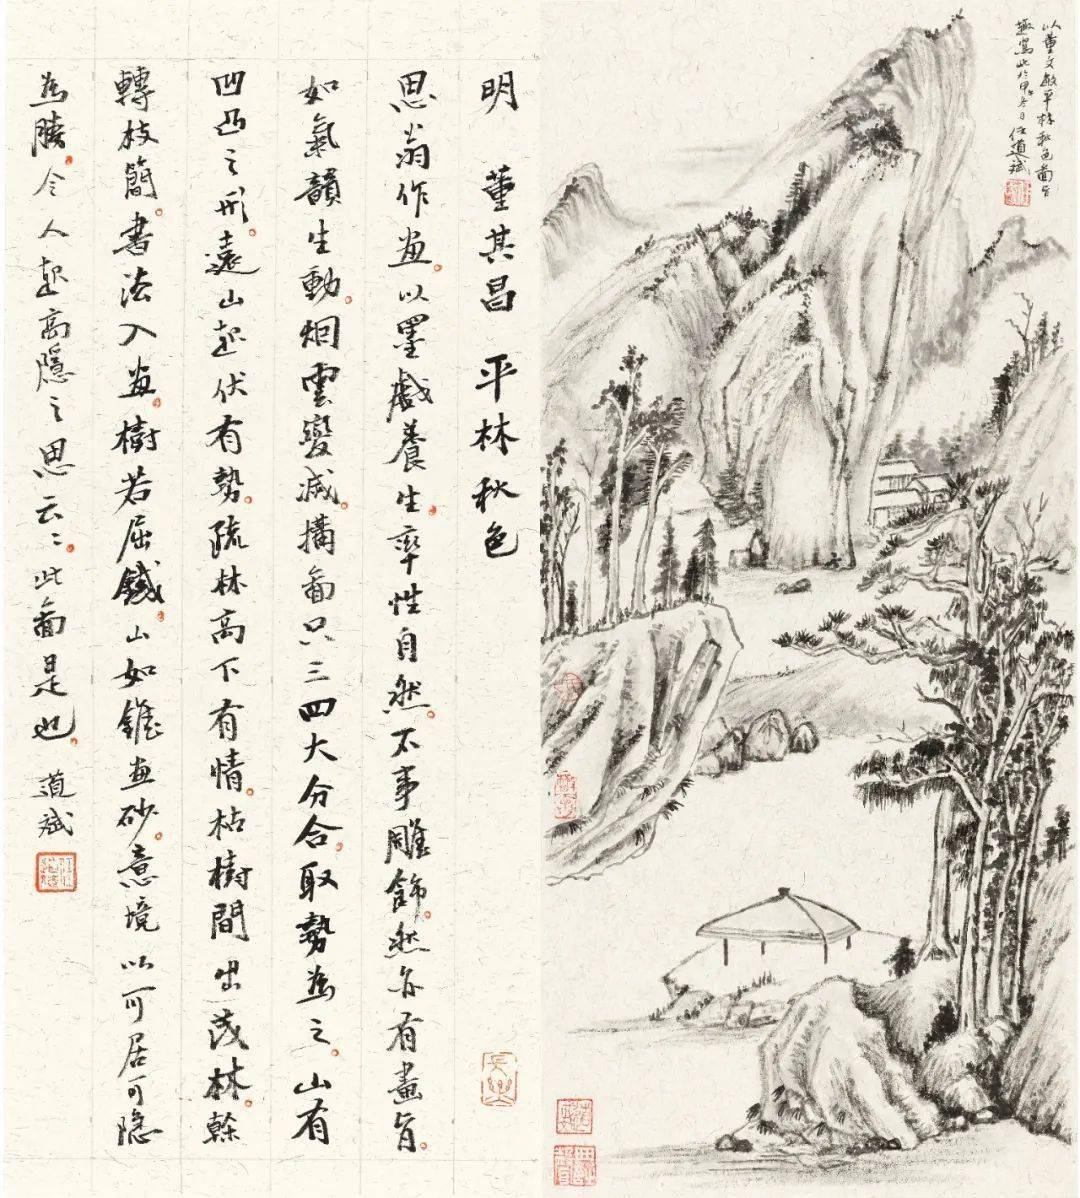 以董文敏平林秋色啚旨
趣寫此於甲午冬日任道斌
明 董其昌 平林秋色
思翁作画。以墨戲養生。率性自然。不事雕飾。然亦有畫旨。
如氣韻生動。烟雲變滅。搆啚只三四大分合。取勢為之。山有
凹凸之形。遠山起伏有勢。疏林高下有情。枯樹間出茂林。榦
轉枝簡。書法入画。樹若屈鐵。山如錐画砂。意境以可居可隐
為勝。令人起高隱之思云〻。此啚是也。 道斌